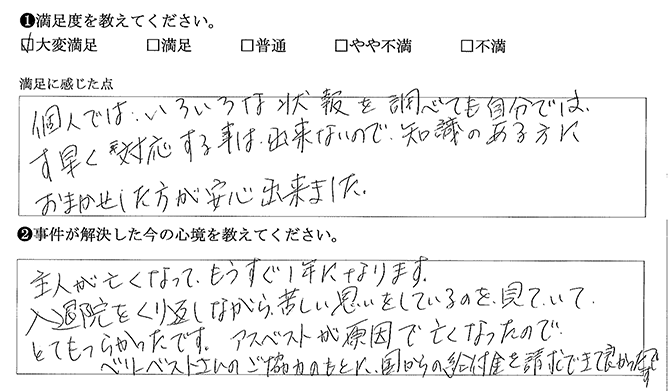 ❶満足度を教えてください。
☑大変満足 □満足 □普通 □やや不満 □不満
満足に感じた点
個人では、いろいろな状報を調べても自分では、
す早く対応する事は、出来ないので、知識のある方に
おまかせした方が安心出来ました。
❷事件が解決した今の心境を教えてください。
主人が亡くなって、もうすぐ1年になります。
入退院をくり返しながら、苦しい思いをしているのを、見ていて、
とてもつらかったです。 アスベストが原因で亡くなったので、
ベリーベストさんのご協力のもとに、国からの給付金を請求できて良かったです